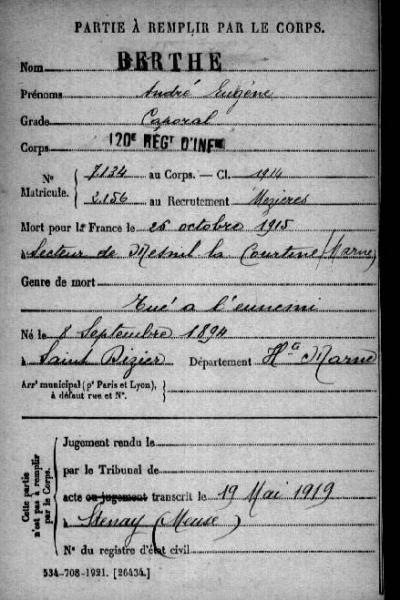 PARTIE À REMPLIR PAR LE CORPS.
Nom BERTHE
Prénoms André Eugène
Grade Caporal
Corps 120E RÉGT D'INFIE
No Matricule. 7134 au Corps. — Cl. 1914
2156 au Recrutement Mézières
Mort pour la France le 25 octobre 1915
à Secteur de Mesnil la Courtine (Marne)
Genre de mort
Tué a l'ennemi
Né le 8 Septembre 1894
à Saint Dizier Département Hte Marne
Arrt municipal (pr Paris et Lyon), à défaut rue et No.
Cette partie n'est pas à remplir par le Corps.
Jugement rendu le
par le Tribunal de
acte ou jugement transcrit le 19 Mai 1919
à Stenay (Meuse)
No du registre d'état civil
534-708-1921. [26434.]